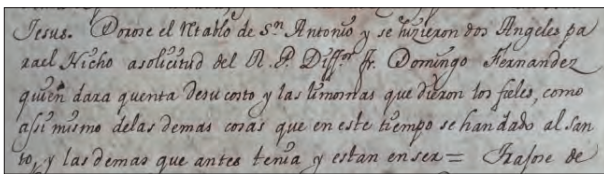 Jesus. Dorose el Rtablo de Sn. Antonio y se hizieron dos Angeles pa
rael Nicho asolicitud del R. P. Diffor. Fr. Domingo Fernandez
quien dara quenta desu costo y las limosnas que dieron los fieles, como
assi mismo delas demas cosas que en este tiempo se han dado al San
to, y las demas que antes tenia y estan enser = Trajose de